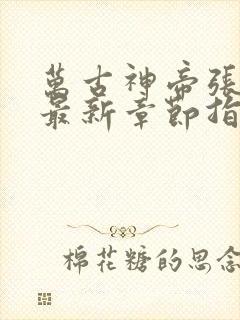 萬古神帝張
最新章節指
棉花糖的思念